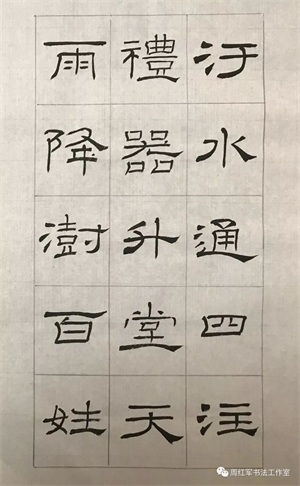 汙水通四注
禮器升堂天
雨降澍百姓
周红军书法工作室